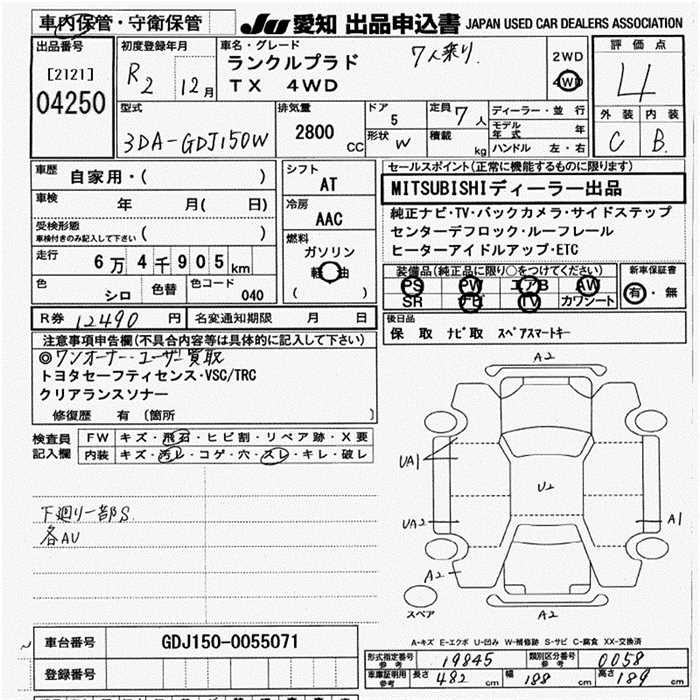 車内保管・守衛保管
JU 愛知 出品申込書 JAPAN USED CAR DEALERS ASSOCIATION
出品番号
[2121]
04250
初度登録年月
R2 12月
車名・グレード
ランクルプラド 7人乗り.
TX 4WD
2WD
4WD
評価点
4
外装 内装
C B.
型式
3DA-GDJ150W
排気量
2800 CC
ドア 5
形状 W
定員 7人
積載 kg
ディーラー・並行
モデル年式 年
ハンドル 左・右
車歴 自家用・( )
車検 年 月( 日)
受検形態
車検付きのみ記入して下さい ( )
走行 6万4千905km
色 シロ 色替 色コード 040
シフト
AT
冷房
AAC
燃料
ガソリン
軽油
( )
セールスポイント(正常に機能するものに限ります)
MITSUBISHIディーラー出品
純正ナビ・TV・バックカメラ・サイドステップ
センターデフロック・ルーフレール
ヒーターアイドルアップ・ETC
装備品(純正品に限り○をつけてください)
PS PW エアB AW
SR ナビ TV カワシート
新車保証書
有・無
R券 12490円 名変通知期限 月 日
後日品
保 取 ナビ取 スペアスマートキー
注意事項申告欄(不具合内容等は具体的に記入して下さい)
◎ワンオーナー・ユーザー買取
トヨタセーフティセンス・VSC/TRC
クリアランスソナー
修復歴 有 (箇所 )
検査員記入欄
FW キズ・飛石・ヒビ割・リペア跡・X要
内装 キズ・汚レ・コゲ・穴・スレ・キレ・破レ
下廻り一部S.
各AU
A2
UA1
U2
UA2
A1
A2
スペア
A2
A-キズ E-エクボ U-凹み W-補修跡 S-サビ C-腐食 XX-交換済
車台番号 GDJ150-0055071
登録番号
形式指定番号 参考 19845 類別区分番号 参考 0058
車庫証明用 参考 長さ 482cm 幅 188cm 高さ 189cm